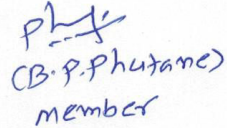 (B.P.Phutane)
member